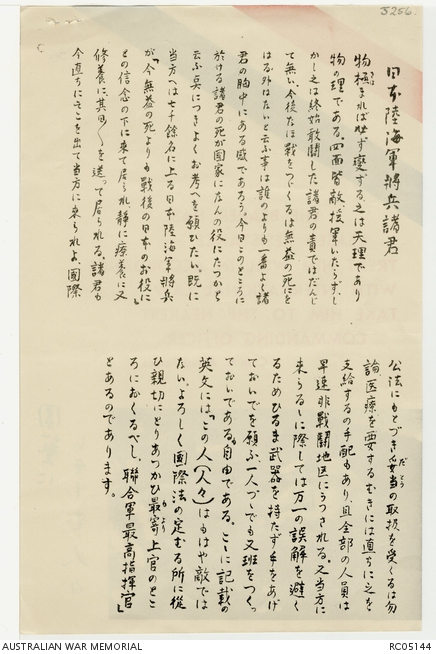 J256.
日本陸海軍將兵諸君
物極まれば必ず變ずる之は天理であり
物の理である。四面皆敵援軍いたらずし
かし之は終始敢鬪した諸君の責ではだんじ
て無い、今後なほ戰をつゞくるは無益の死にを
はる外はないと云ふ事は誰のよりも一番よく諸
君の胸中にある感であろう。今日このところに
於ける諸君の死が國家になんの役にたつかと
云ふ点につきよくお考へを願ひたい。既に
当方へは七千餘名に上る日本陸海軍將兵
が「今無益の死よりも戰後の日本のお役に」
との信念の下に来て居られ、靜に療養に又
修養に、其日〱を送って居られる、諸君も
今直ちにそこを出て当方に来られよ、國際
公法にもとづき妥当の取扱を受くるは勿
論、医療を要するむきには直ちに之を
支給するの手配もあり、且全部の人員は
早速非戰鬪地区にうつされる。又当方に
来らるゝに際しては万一の誤解を避く
るためひるま武器を持たず手をあげ
ておいでを願ふ、一人づゝでも又班をつくっ
ておいでも自由である。こゝに記載の
英文には「この人（人々）はもはや敵では
ない、よろしく國際法の定むる所に從
ひ親切にとりあつかひ最寄上官のとこ
ろにおくるべし、聯合軍最高指揮官」
とあるのであります。
AUSTRALIAN WAR MEMORIAL
RC05144